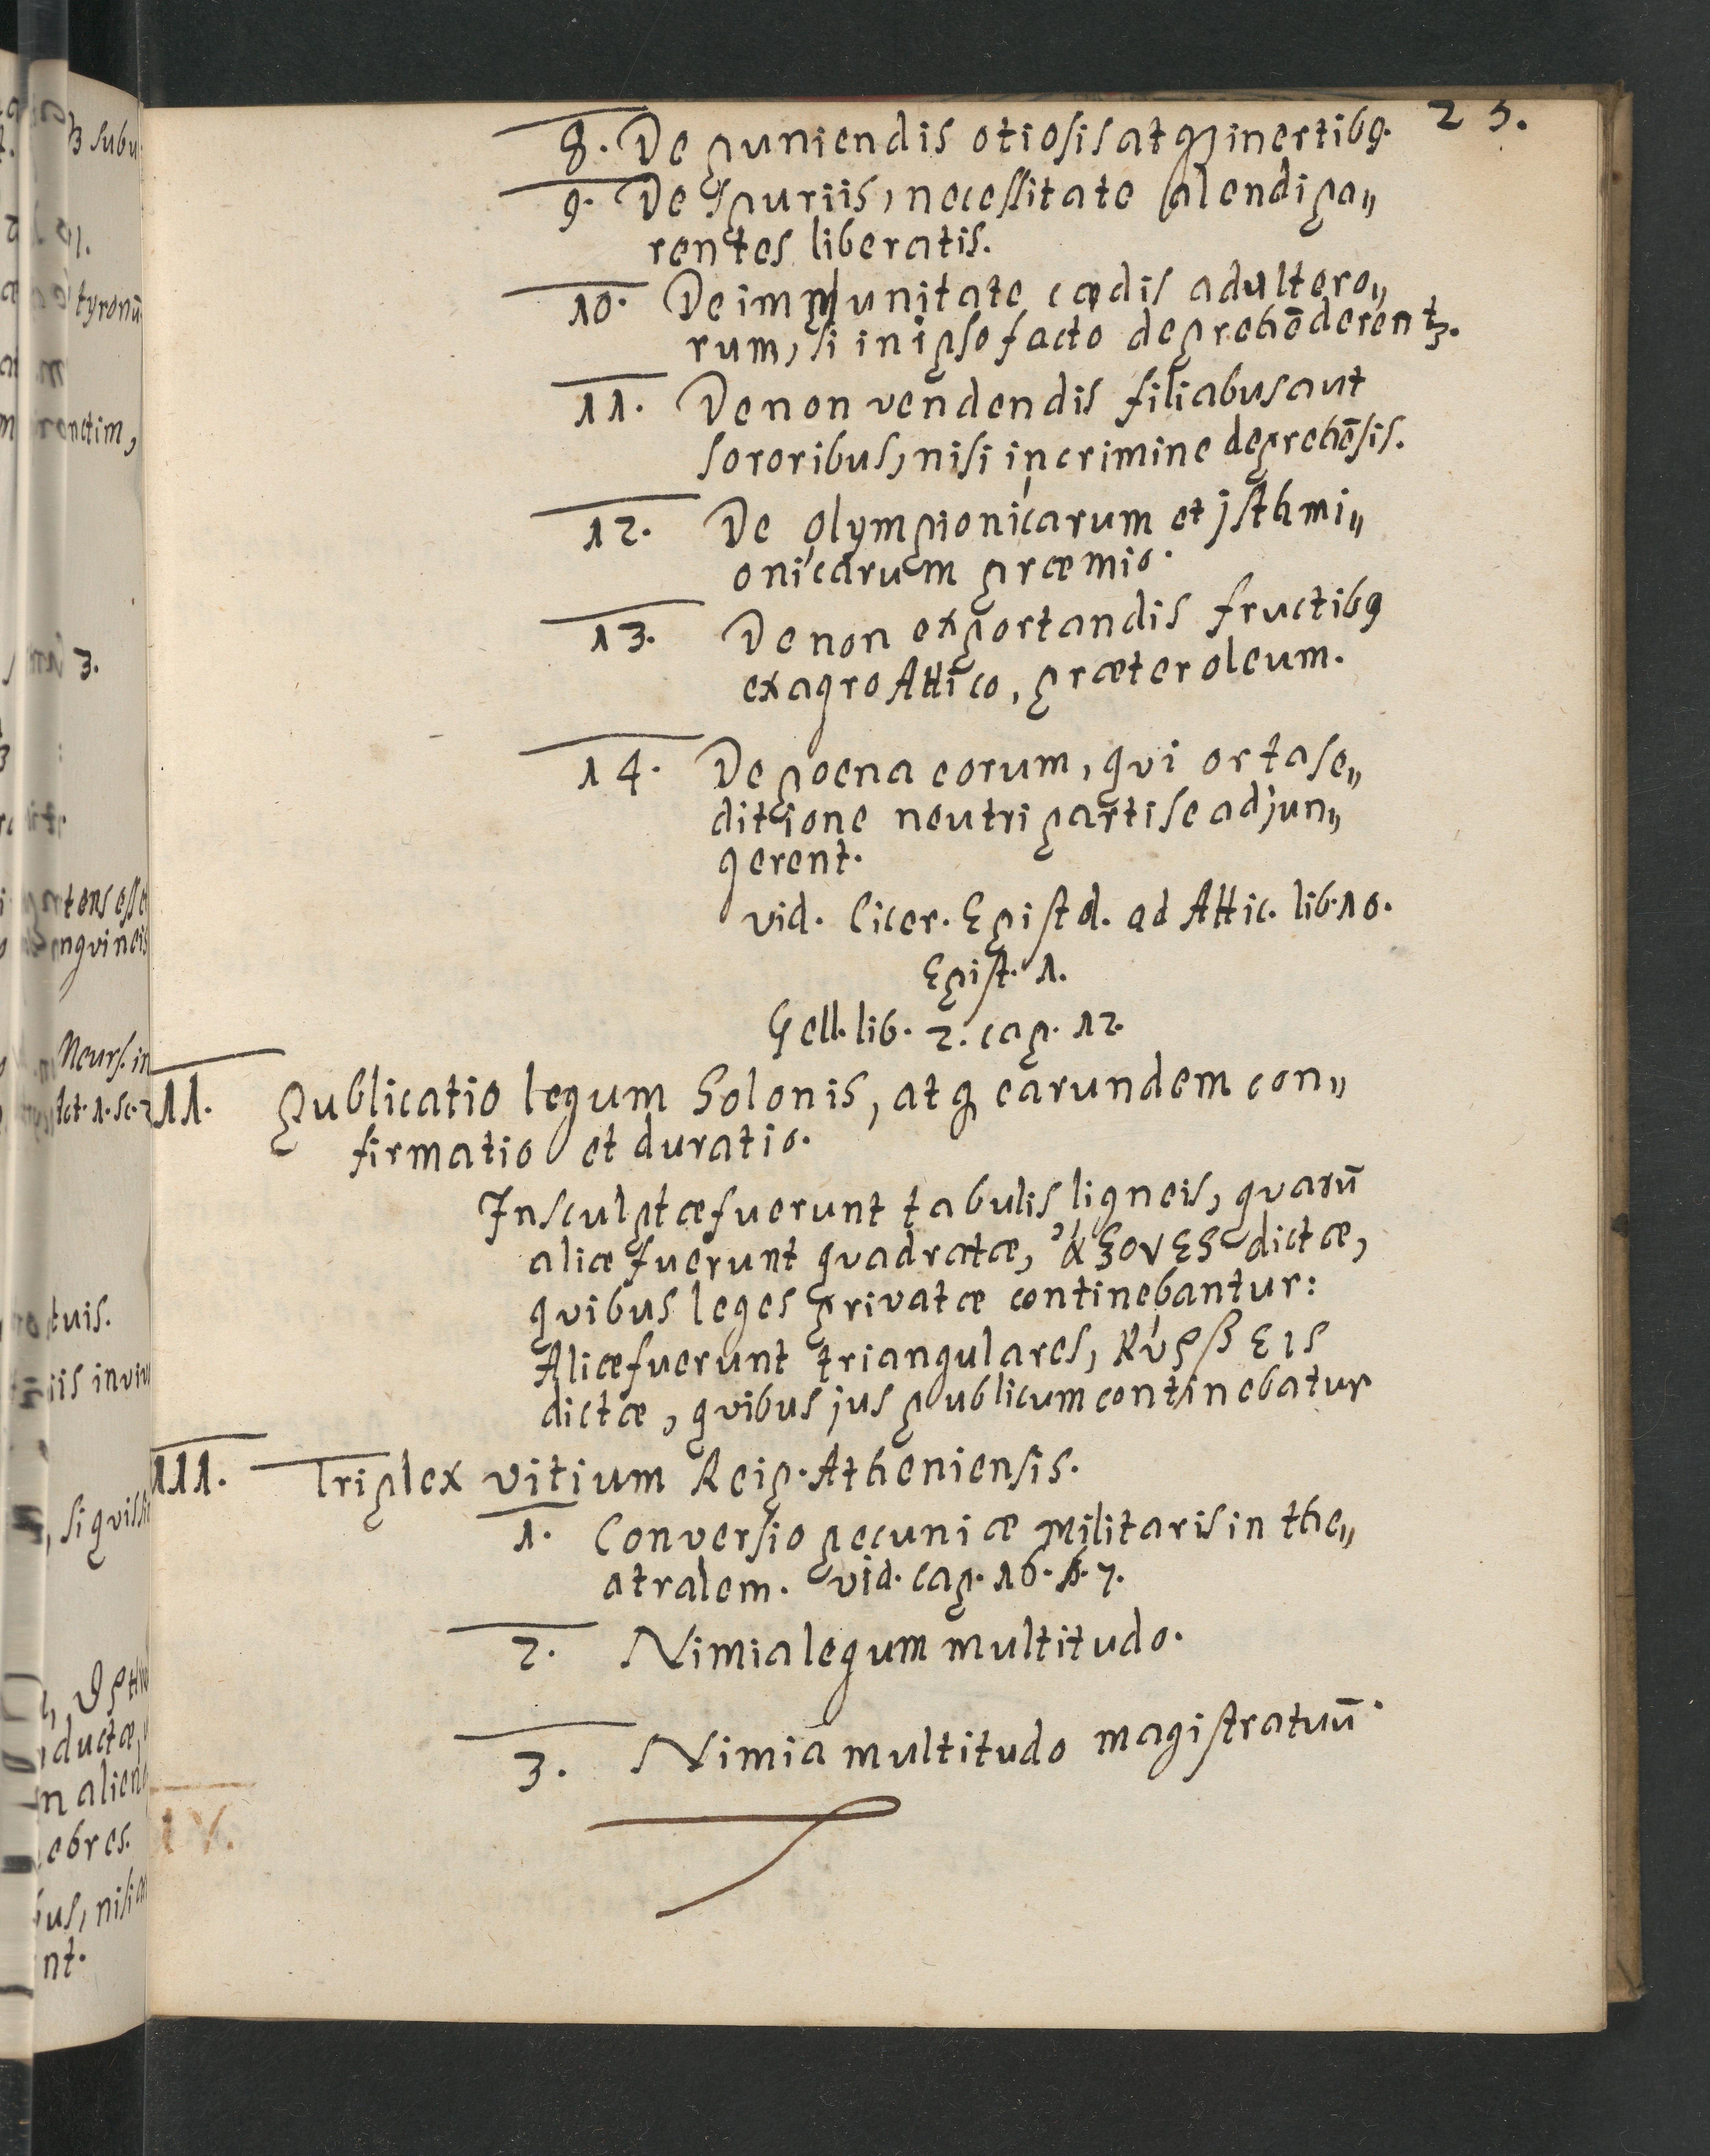 23.
8. De puniendis otiosis atq; inertibꝰ.
9. De spuriis, necessitate alendi pa„
rentes liberatis.
10. De immunitate cædis adultero„
rum, si in ipso facto deprehēderentꝫ.
11. De non vendendis filiabus aut
sororibus, nisi in crimine deprehēsis.
12. De olympionicarum et jsthmi„
onicarum præmio.
13. De non exportandis fructibꝰ
ex agro Attico, præter oleum.
14. De poena eorum, qvi orta se„
ditione neutri parti se adjun„
gerent.
vid. Cicer. Epistol. ad Attic. lib. 10.
Epist. 1.
Gell. lib. 2. cap. 12.
II. Publicatio legum Solonis, atq; earundem con„
firmatio et duratio.
Insculptæ fuerunt tabulis ligneis, qvarū
aliæ fuerunt qvadratæ, ἄξονες dictæ,
qvibus leges privatæ continebantur:
Aliæ fuerunt triangulares, κύρβεις
dictæ, qvibus jus publicum continebatur
III. Triplex vitium Reip. Atheniensis.
1. Conversio pecuniæ militaris in the„
atralem. vid. cap. 16. §. 7.
2. Nimia legum multitudo.
3. Nimia multitudo magistratuū.
IV.